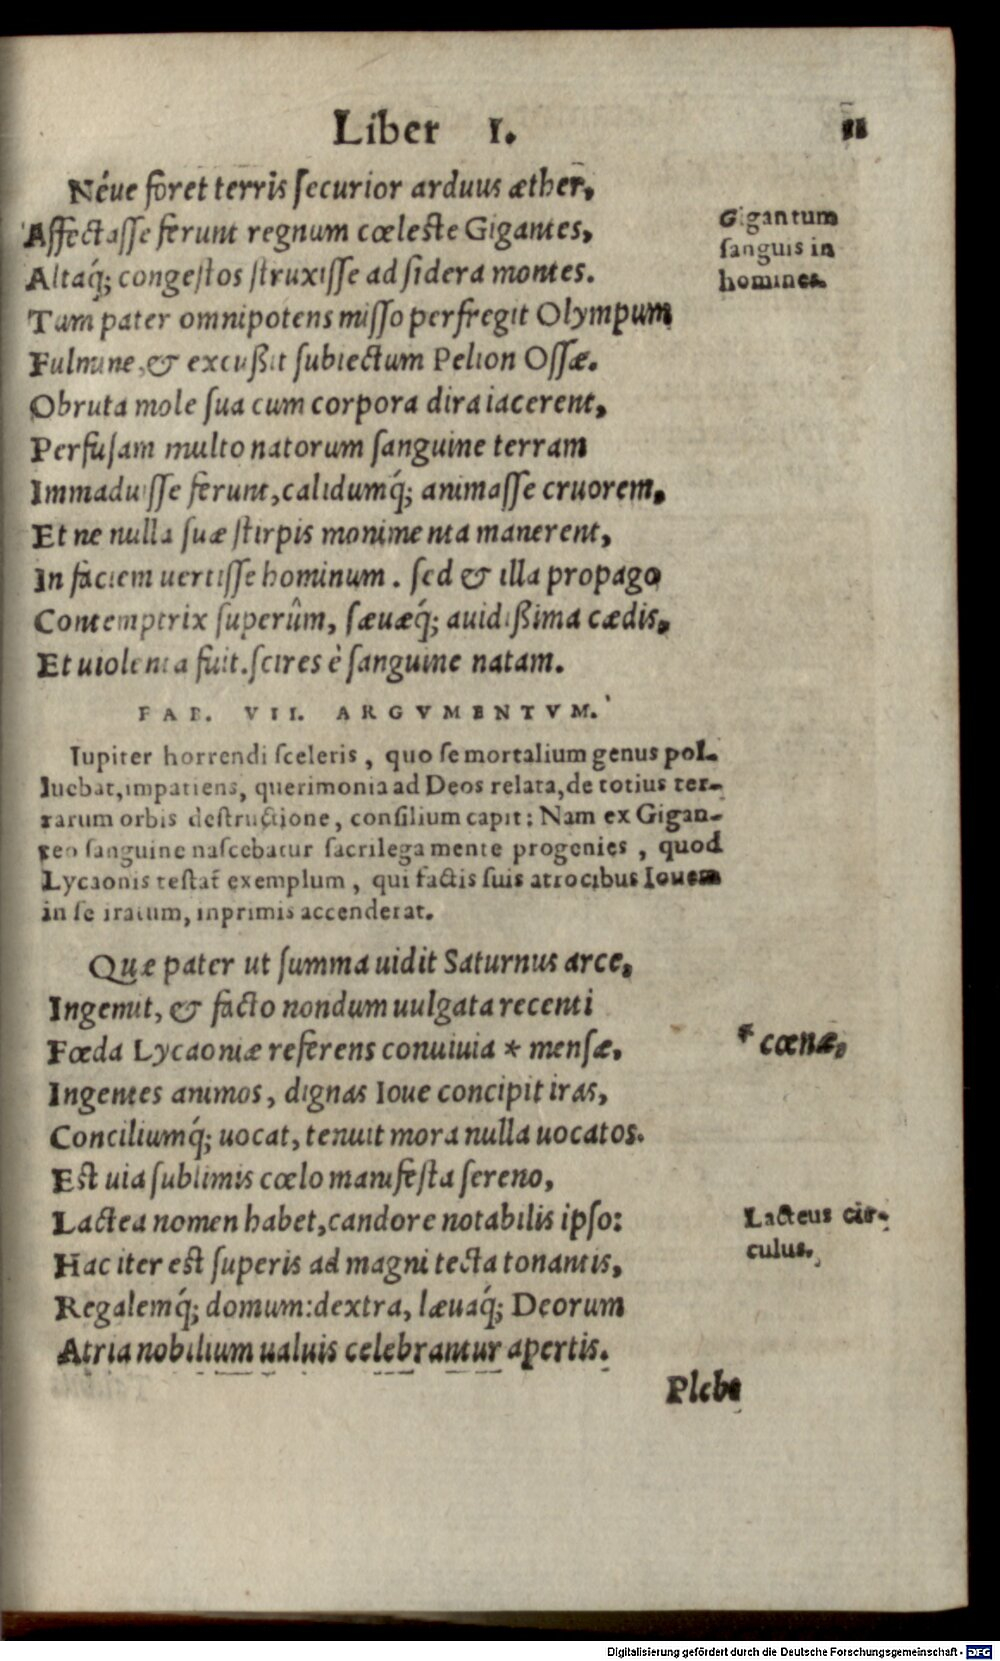 Liber I.
11
Néue foret terris securior arduus æther,
Affectasse ferunt regnum cœleste Gigantes,
Altaq́; congestos struxisse ad sidera montes.
Tum pater omnipotens misso perfregit Olympum
Fulmine, & excußit subiectum Pelion Ossæ.
Obruta mole sua cum corpora dira iacerent,
Perfusam multo natorum sanguine terram
Immaduisse ferunt, calidumq́; animasse cruorem,
Et ne nulla suæ stirpis monimenta manerent,
In faciem uertisse hominum. sed & illa propago
Contemptrix superûm, sæuæq́; auidißima cædis,
Et uiolenta fuit. scires è sanguine natam.
Gigantum
sanguis in
homines.
FAB. VII. ARGVMENTVM.
Iupiter horrendi sceleris, quo se mortalium genus pol-
luebat, impatiens, querimonia ad Deos relata, de totius ter-
rarum orbis destructione, consilium capit: Nam ex Gigan-
teo sanguine nascebatur sacrilega mente progenies, quod
Lycaonis testat̄ exemplum, qui factis suis atrocibus Iouem
in se iratum, inprimis accenderat.
Quæ pater ut summa uidit Saturnus arce,
Ingemit, & facto nondum uulgata recenti
Fœda Lycaoniæ referens conuiuia * mensæ,
Ingentes animos, dignas Ioue concipit iras,
Conciliumq́; uocat, tenuit mora nulla uocatos.
Est uia sublimis cœlo manifesta sereno,
Lactea nomen habet, candore notabilis ipso:
Hac iter est superis ad magni tecta tonantis,
Regalemq́; domum: dextra, læuaq́; Deorum
Atria nobilium ualuis celebrantur apertis.
* cœnæ,
Lacteus cir-
culus.
Plebs
Digitalisierung gefördert durch die Deutsche Forschungsgemeinschaft - DFG